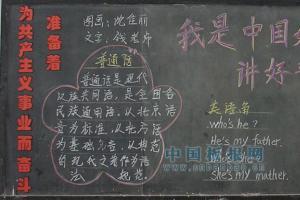 为共产主义事业而奋斗
准备着
图画:沈佳丽
文字:钱老师
普通话
普通话是现代
汉民族共同语,是全国各
民族通用语。以北京语
音为标准,以北方话
为基础方言,以典范
的现代文著作为语
法规范
我是中国
讲好
英语角
who's he?
He's my father.
Who's she?
she's my mather.
中国板报网